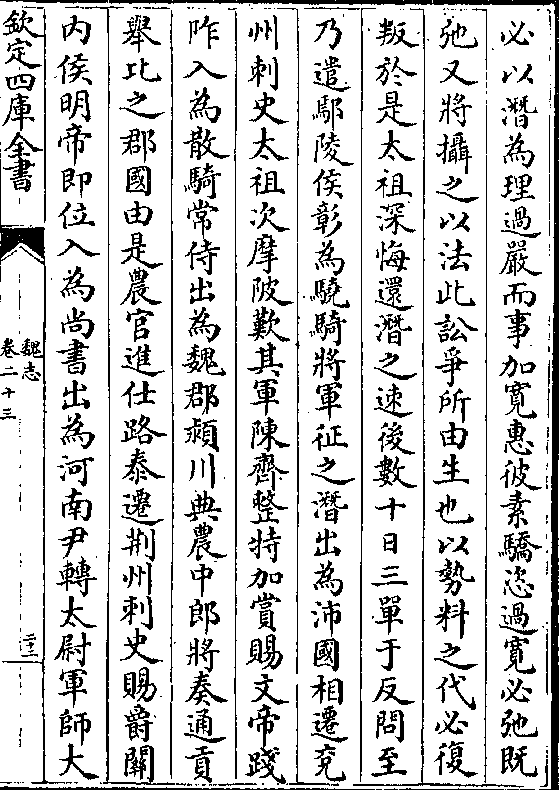 必以潛為理過嚴而事加寛惠彼素驕恣過寛必弛既
弛又將攝之以法此訟爭所由生也以勢料之代必復
叛於是太祖深悔還潛之速後數十日三單于反問至
乃遣鄢陵侯彰為驍騎將軍征之潛出為沛國相遷兖
州刺史太祖次摩陂歎其軍陳齊整特加賞賜文帝踐
阼入為散騎常侍出為魏郡潁川典農中郎將奏通貢
舉比之郡國由是農官進仕路泰遷荆州刺史賜爵關
内侯明帝即位入為尚書出為河南尹轉太尉軍師大
欽定四庫全書
魏志
卷二十三
二三